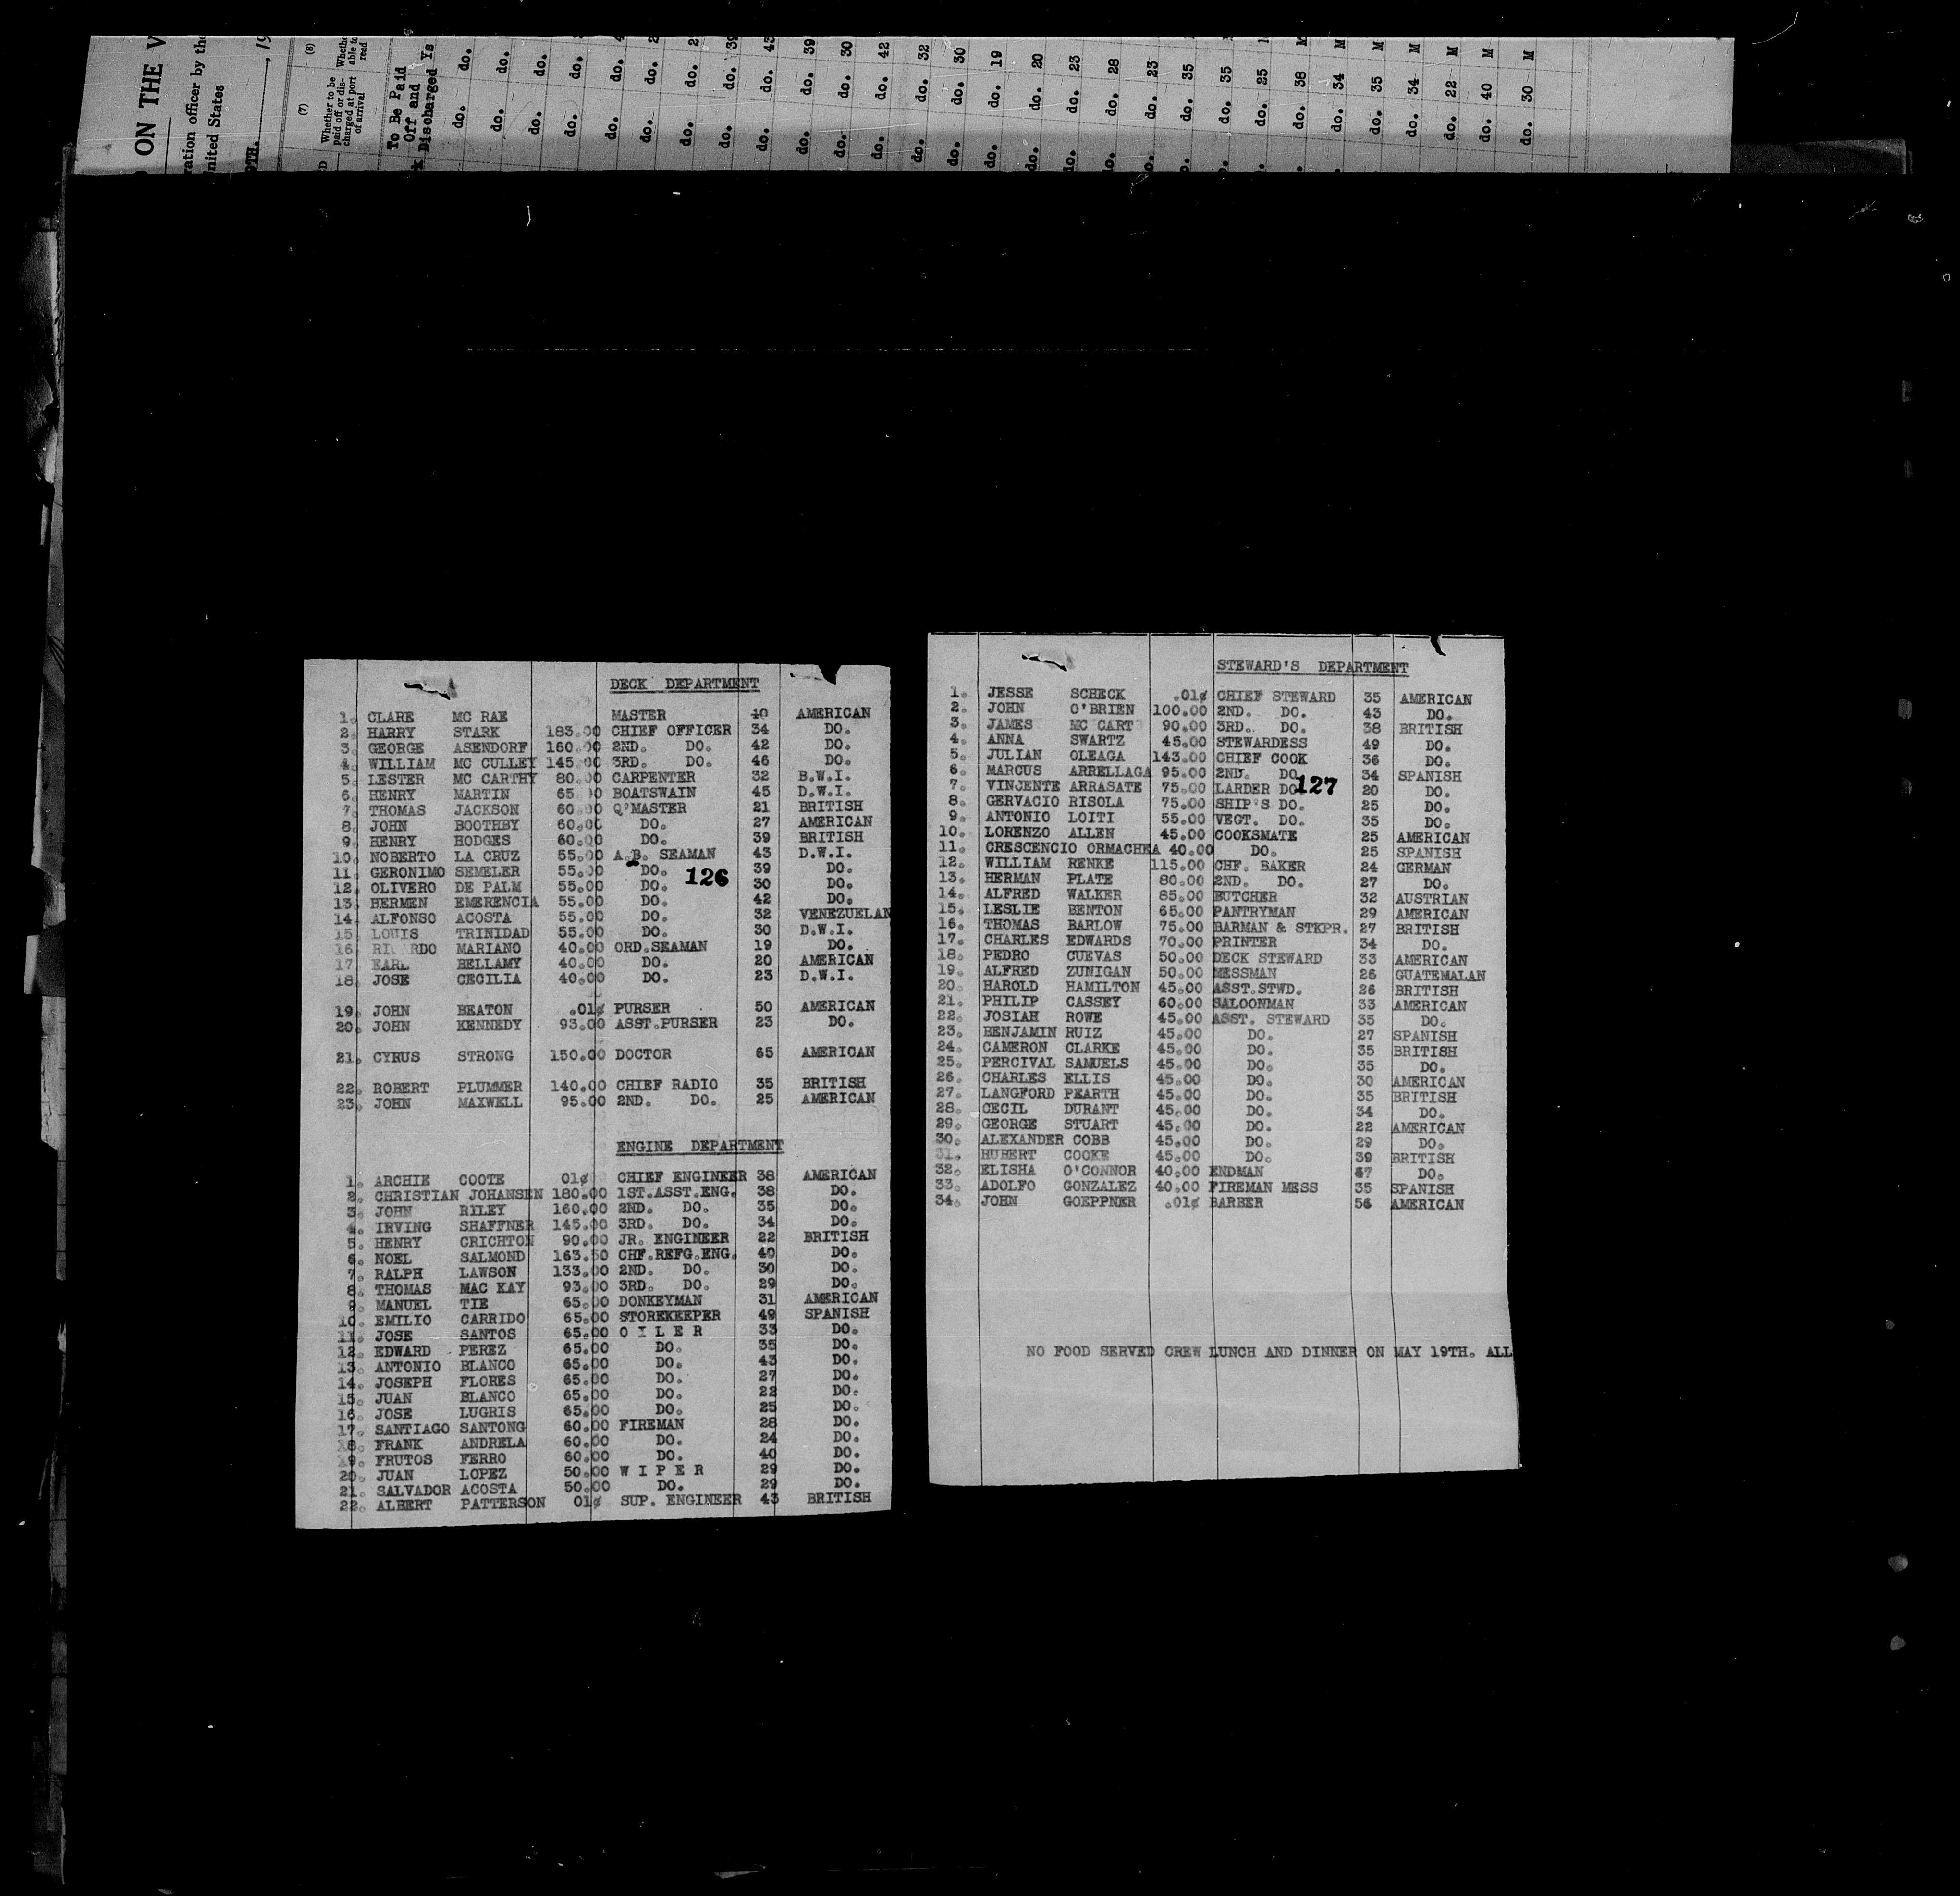 ON THE V
ration officer by the
United States
, 19
(7)
(8)
Whether to be
paid off or dis-
charged at port
of arrival
Whethe
able to
read
To Be Paid
Off and
Discharged Is
do. do.
do. do.
do. do.
do. do.
do. do.
do. do.
do. do.
do. do. 39
do. do. 43
do. do. 39
do. do. 30
do. do. 42
do. do. 32
do. do. 30
do. do. 19
do. do. 20
do. do. 23
do. do. 28
do. do. 23
do. do. 35
do. 35
do. 25
do. 38 M
do. 34 M
do. 35 M
do. 34 M
do. 22 M
do. 40 M
do. 30 M
DECK DEPARTMENT
1. CLARE MC RAE MASTER 40 AMERICAN
2. HARRY STARK 183.00 CHIEF OFFICER 34 DO.
3. GEORGE ASENDORF 160.00 2ND. DO. 42 DO.
4. WILLIAM MC CULLEY 145.00 3RD. DO. 46 DO.
5. LESTER MC CARTHY 80.00 CARPENTER 32 B.W.I.
6. HENRY MARTIN 65 00 BOATSWAIN 45 D.W.I.
7. THOMAS JACKSON 60 00 Q'MASTER 21 BRITISH
8. JOHN BOOTHBY 60.00 DO. 27 AMERICAN
9. HENRY HODGES 60.00 DO. 39 BRITISH
10. NOBERTO LA CRUZ 55.00 A.B. SEAMAN 43 D.W.I.
11. GERONIMO SEMELER 55.00 DO. 39 DO.
126
12. OLIVERO DE PALM 55.00 DO. 30 DO.
13. HERMEN EMERENCIA 55.00 DO. 42 DO.
14. ALFONSO ACOSTA 55.00 DO. 32 VENEZUELAN
15. LOUIS TRINIDAD 55.00 DO. 30 D.W.I.
16. RI RDO MARIANO 40.00 ORD.SEAMAN 19 DO.
17. EARL BELLAMY 40.00 DO. 20 AMERICAN
18. JOSE CECILIA 40.00 DO. 23 D.W.I.
19. JOHN BEATON .01¢ PURSER 50 AMERICAN
20. JOHN KENNEDY 93.00 ASST.PURSER 23 DO.
21. CYRUS STRONG 150.00 DOCTOR 65 AMERICAN
22. ROBERT PLUMMER 140.00 CHIEF RADIO 35 BRITISH
23. JOHN MAXWELL 95.00 2ND. DO. 25 AMERICAN
ENGINE DEPARTMENT
1. ARCHIE COOTE 01¢ CHIEF ENGINEER 38 AMERICAN
2. CHRISTIAN JOHANSEN 180.00 1ST.ASST.ENG. 38 DO.
3. JOHN RILEY 160.00 2ND. DO. 35 DO.
4. IRVING SHAFFNER 145.00 3RD. DO. 34 DO.
5. HENRY CRICHTON 90.00 JR. ENGINEER 22 BRITISH
6. NOEL SALMOND 163.50 CHF.REFG.ENG. 40 DO.
7. RALPH LAWSON 133.00 2ND. DO. 30 DO.
8. THOMAS MAC KAY 93.00 3RD. DO. 29 DO.
9. MANUEL TIE 65.00 DONKEYMAN 31 AMERICAN
10. EMILIO CARRIDO 65.00 STOREKEEPER 49 SPANISH
11. JOSE SANTOS 65.00 O I L E R 33 DO.
12. EDWARD PEREZ 65.00 DO. 35 DO.
13. ANTONIO BLANCO 65.00 DO. 43 DO.
14. JOSEPH FLORES 65.00 DO. 27 DO.
15. JUAN BLANCO 65.00 DO. 22 DO.
16. JOSE LUGRIS 65.00 DO. 25 DO.
17. SANTIAGO SANTONG 60.00 FIREMAN 28 DO.
18. FRANK ANDRELA 60.00 DO. 24 DO.
19. FRUTOS FERRO 60.00 DO. 40 DO.
20. JUAN LOPEZ 50.00 W I P E R 29 DO.
21. SALVADOR ACOSTA 50.00 DO. 29 DO.
22. ALBERT PATTERSON 01¢ SUP. ENGINEER 43 BRITISH
STEWARD'S DEPARTMENT
1. JESSE SCHECK .01¢ CHIEF STEWARD 35 AMERICAN
2. JOHN O'BRIEN 100.00 2ND. DO. 43 DO.
3. JAMES MC CART 90.00 3RD. DO. 38 BRITISH
4. ANNA SWARTZ 45.00 STEWARDESS 49 DO.
5. JULIAN OLEAGA 143.00 CHIEF COOK 36 DO.
6. MARCUS ARRELLAGA 95.00 2ND. DO. 34 SPANISH
127
7. VINCENTE ARRASATE 75.00 LARDER DO. 20 DO.
8. GERVACIO RISOLA 75.00 SHIP'S DO. 25 DO.
9. ANTONIO LOITI 55.00 VEGT. DO. 35 DO.
10. LORENZO ALLEN 45.00 COOKSMATE 25 AMERICAN
11. CRESCENCIO ORMACHEA 40.00 DO. 25 SPANISH
12. WILLIAM RENKE 115.00 CHF. BAKER 24 GERMAN
13. HERMAN PLATE 80.00 2ND. DO. 27 DO.
14. ALFRED WALKER 85.00 BUTCHER 32 AUSTRIAN
15. LESLIE BENTON 65.00 PANTRYMAN 29 AMERICAN
16. THOMAS BARLOW 75.00 BARMAN & STKPR. 27 BRITISH
17. CHARLES EDWARDS 70.00 PRINTER 34 DO.
18. PEDRO CUEVAS 50.00 DECK STEWARD 33 AMERICAN
19. ALFRED ZUNIGAN 50.00 MESSMAN 26 GUATEMALAN
20. HAROLD HAMILTON 45.00 ASST.STWD. 26 BRITISH
21. PHILIP CASSEY 60.00 SALOONMAN 33 AMERICAN
22. JOSIAH ROWE 45.00 ASST. STEWARD 35 DO.
23. BENJAMIN RUIZ 45.00 DO. 27 SPANISH
24. CAMERON CLARKE 45.00 DO. 35 BRITISH
25. PERCIVAL SAMUELS 45.00 DO. 35 DO.
26. CHARLES ELLIS 45.00 DO. 30 AMERICAN
27. LANGFORD PEARTH 45.00 DO. 35 BRITISH
28. CECIL DURANT 45.00 DO. 34 DO.
29. GEORGE STUART 45.00 DO. 22 AMERICAN
30. ALEXANDER COBB 45.00 DO. 29 DO.
31. HUBERT COOKE 45.00 DO. 39 BRITISH
32. ELISHA O'CONNOR 40.00 ENDMAN 47 DO.
33. ADOLFO GONZALEZ 40.00 FIREMAN MESS 35 SPANISH
34. JOHN GOEPPNER .01¢ BARBER 56 AMERICAN
NO FOOD SERVED CREW LUNCH AND DINNER ON MAY 19TH. ALL